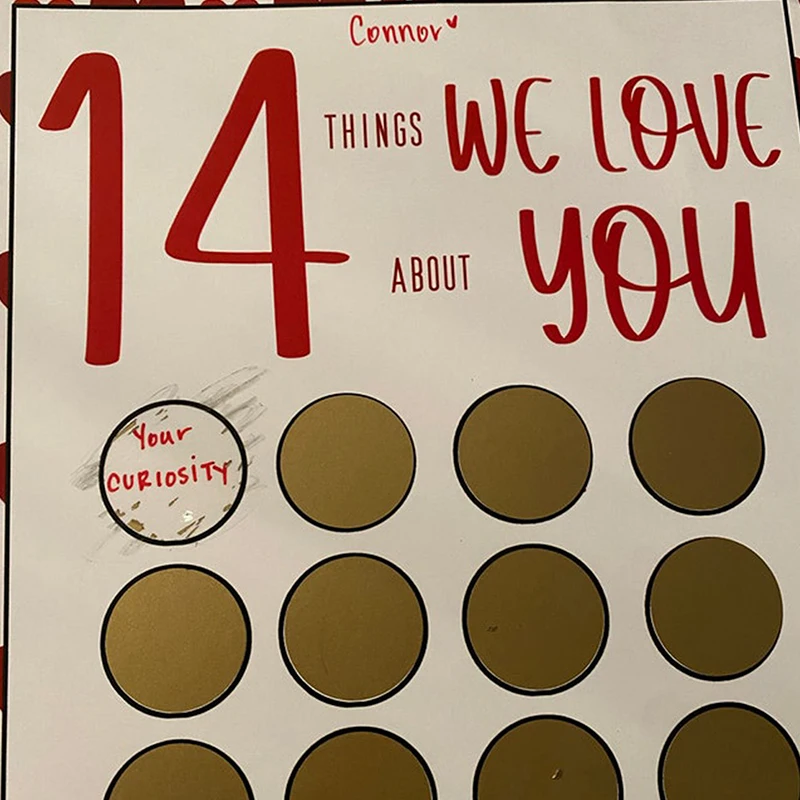 Connor
14 THINGS WE LOVE
ABOUT YOU
Your
CURIOSITY